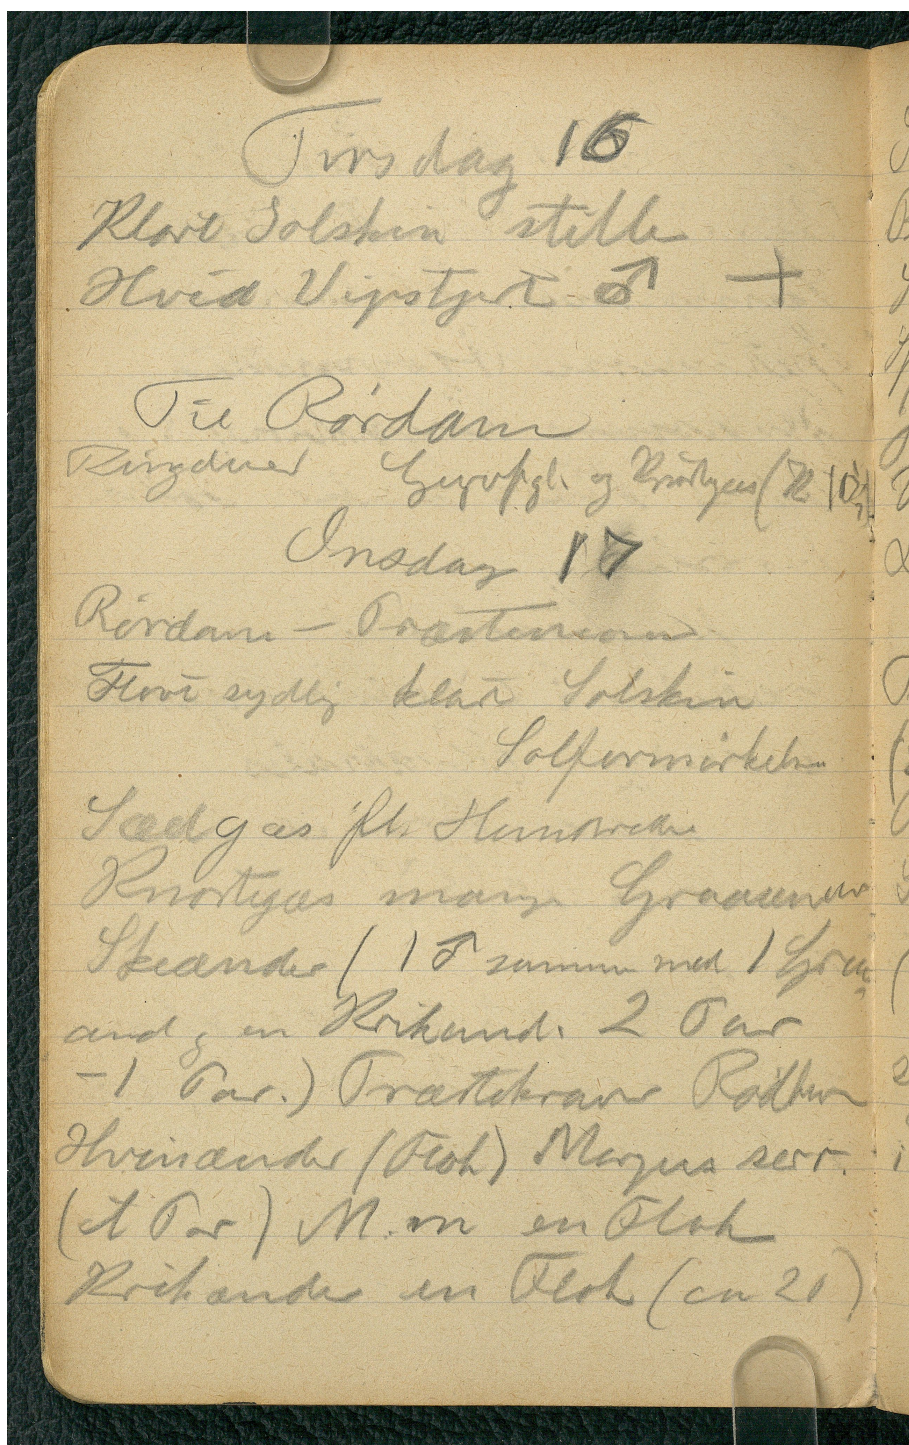 Tirsdag 16
Klart Solskin stille
Hvid Vipstjert ♂ +
Til Rørdam
Ringduer og Knortgæs (
Onsdag 17
Rørdam —
Flovt sydlig klart Solskin
Solformørkelse
Sædgæs fl. Hundrede
Knortegæs mange Graaænder
Skeænder ( 1 ♂ sammen med 1 Graa
and og en Krikand. 2 Par
– 1 Par.)
Hvinænder (Flok) Mergus serr.
(et Par) M. m en Flok
Krikænder en Flok (ca 20)